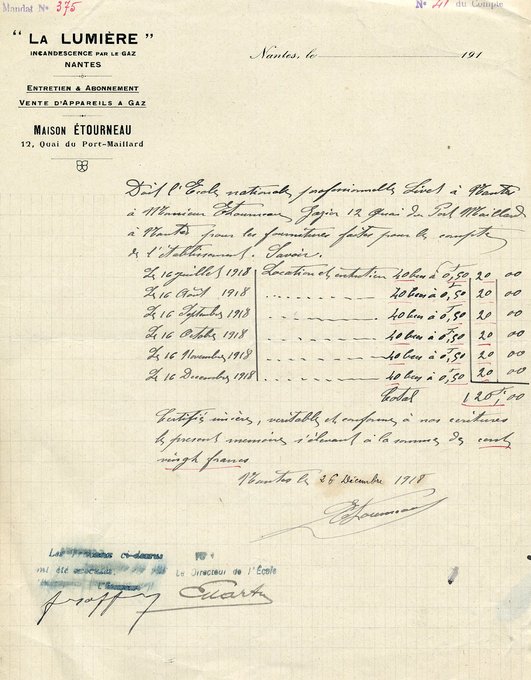 Mandat No 375
No 41 du Compte
“ LA LUMIÈRE ”
INCANDESCENCE PAR LE GAZ
NANTES
ENTRETIEN & ABONNEMENT
VENTE D'APPAREILS A GAZ
MAISON ÉTOURNEAU
12, Quai du Port-Maillard
Nantes, le 191
Doit l'Ecole nationale professionnelle Livet à Nantes
à Monsieur Etourneau Gazier 12 Quai du Port Maillard
à Nantes pour les fournitures faites pour le compte
de l'Etablissement. Savoir.
Le 16 Juillet 1918 Location et entretien 40 becs à 0f,50 20 00
Le 16 Août 1918 40 becs à 0f,50 20 00
Le 16 Septembre 1918 40 becs à 0f,50 20 00
Le 16 Octobre 1918 40 becs à 0f,50 20 00
Le 16 Novembre 1918 40 becs à 0f,50 20 00
Le 16 Decembre 1918 40 becs à 0f,50 20 00
Total 120f,00
Certifié sincère, veritable et conforme à nos écritures
le present memoire s'élevant à la somme de cent
vingt francs
Nantes le 26 Décembre 1918
Etourneau
Les ci-dessus
ont été
Le Directeur de l'École
l'Econome